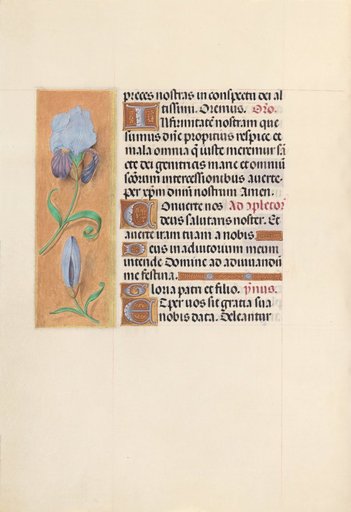 preces nostras in conspectu dei al
tissimi. Oremus. Oro.
Infirmitatem nostram que
sumus dñe propitius respice et
mala omnia q̃ iuste meremur sã
cte dei genitricis marie et omniũ
scõrum intercessionibus auerte.
per xp̃m dñm nostrum Amen.
Conuerte nos Ad cõpletoꝝ
deus salutaris noster. Et
auerte iram tuam a nobis.
Deus in adiutorium meum
intende Domine ad adiuuandũ
me festina.
Gloria patri et filio. ymnus.
Et per uos sit gratia sua
nobis data. Deleantur